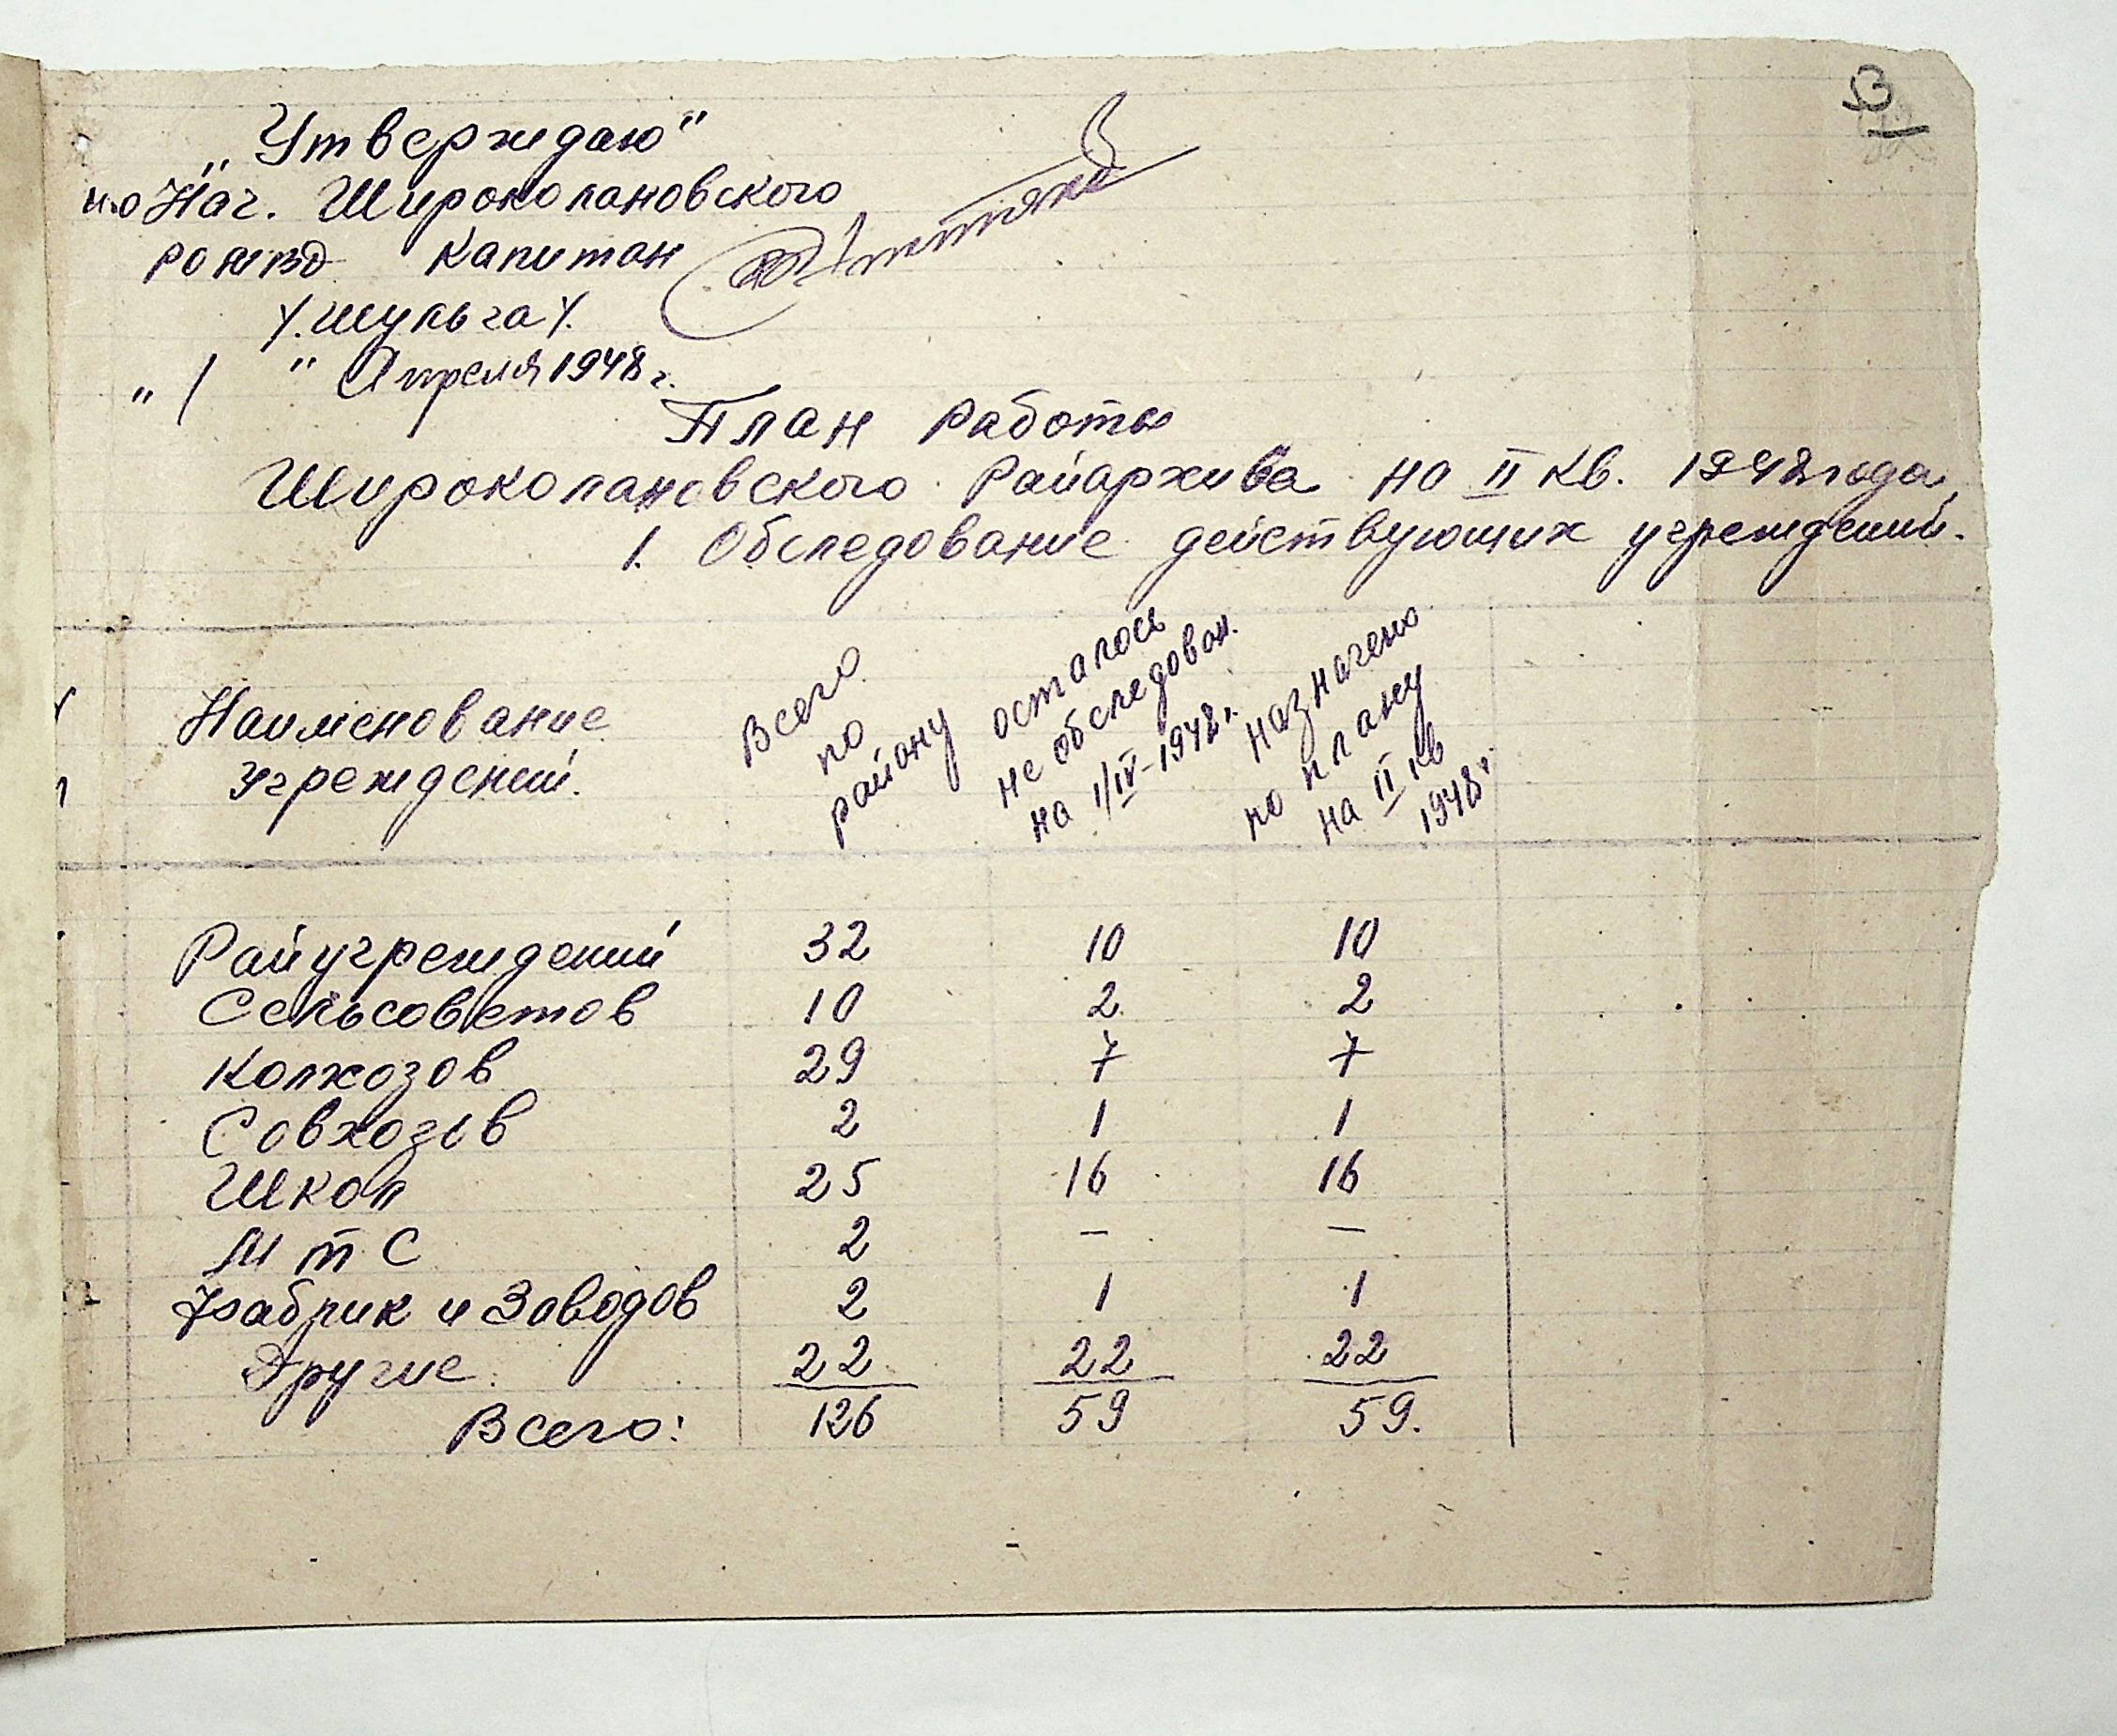 "Утверждаю"
и.о Нач. Широколановского
РО МВД Капитан
/.Шульга/.
" 1 " Апреля 1948 г.
План работы
Широколановского Райархива на II кв. 1948 года,
1. Обследование действующих учреждений.
Наименование учреждений.
Всего по району
осталось не обследован. на 1/IV-1948 г.
назначено по плану на II кв 1948 г.
Райучреждений 32 10 10
Сельсоветов 10 2 2
Колхозов 29 7 7
Совхозов 2 1 1
Школ 25 16 16
М Т С 2 – –
Фабрик и Заводов 2 1 1
Другие 22 22 22
Всего: 126 59 59.